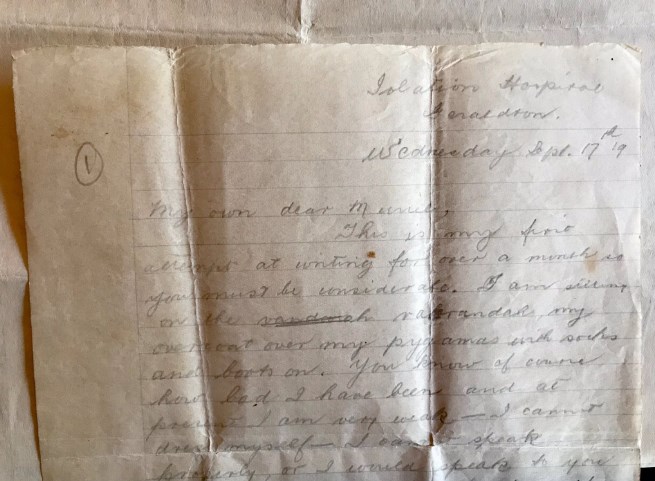 Isolation Hospital
Geraldton.
Wednesday Sept. 17th 19
1
My own dear Minnie,
This is my first
attempt at writing for over a month so
you must be considerate. I am sitting
on the verandah, my
overcoat over my pyjamas with socks
and boots on. You know of course
how bad I have been and at
present I am very weak — I cannot
dress myself — I cannot speak
properly, or I would speak to you